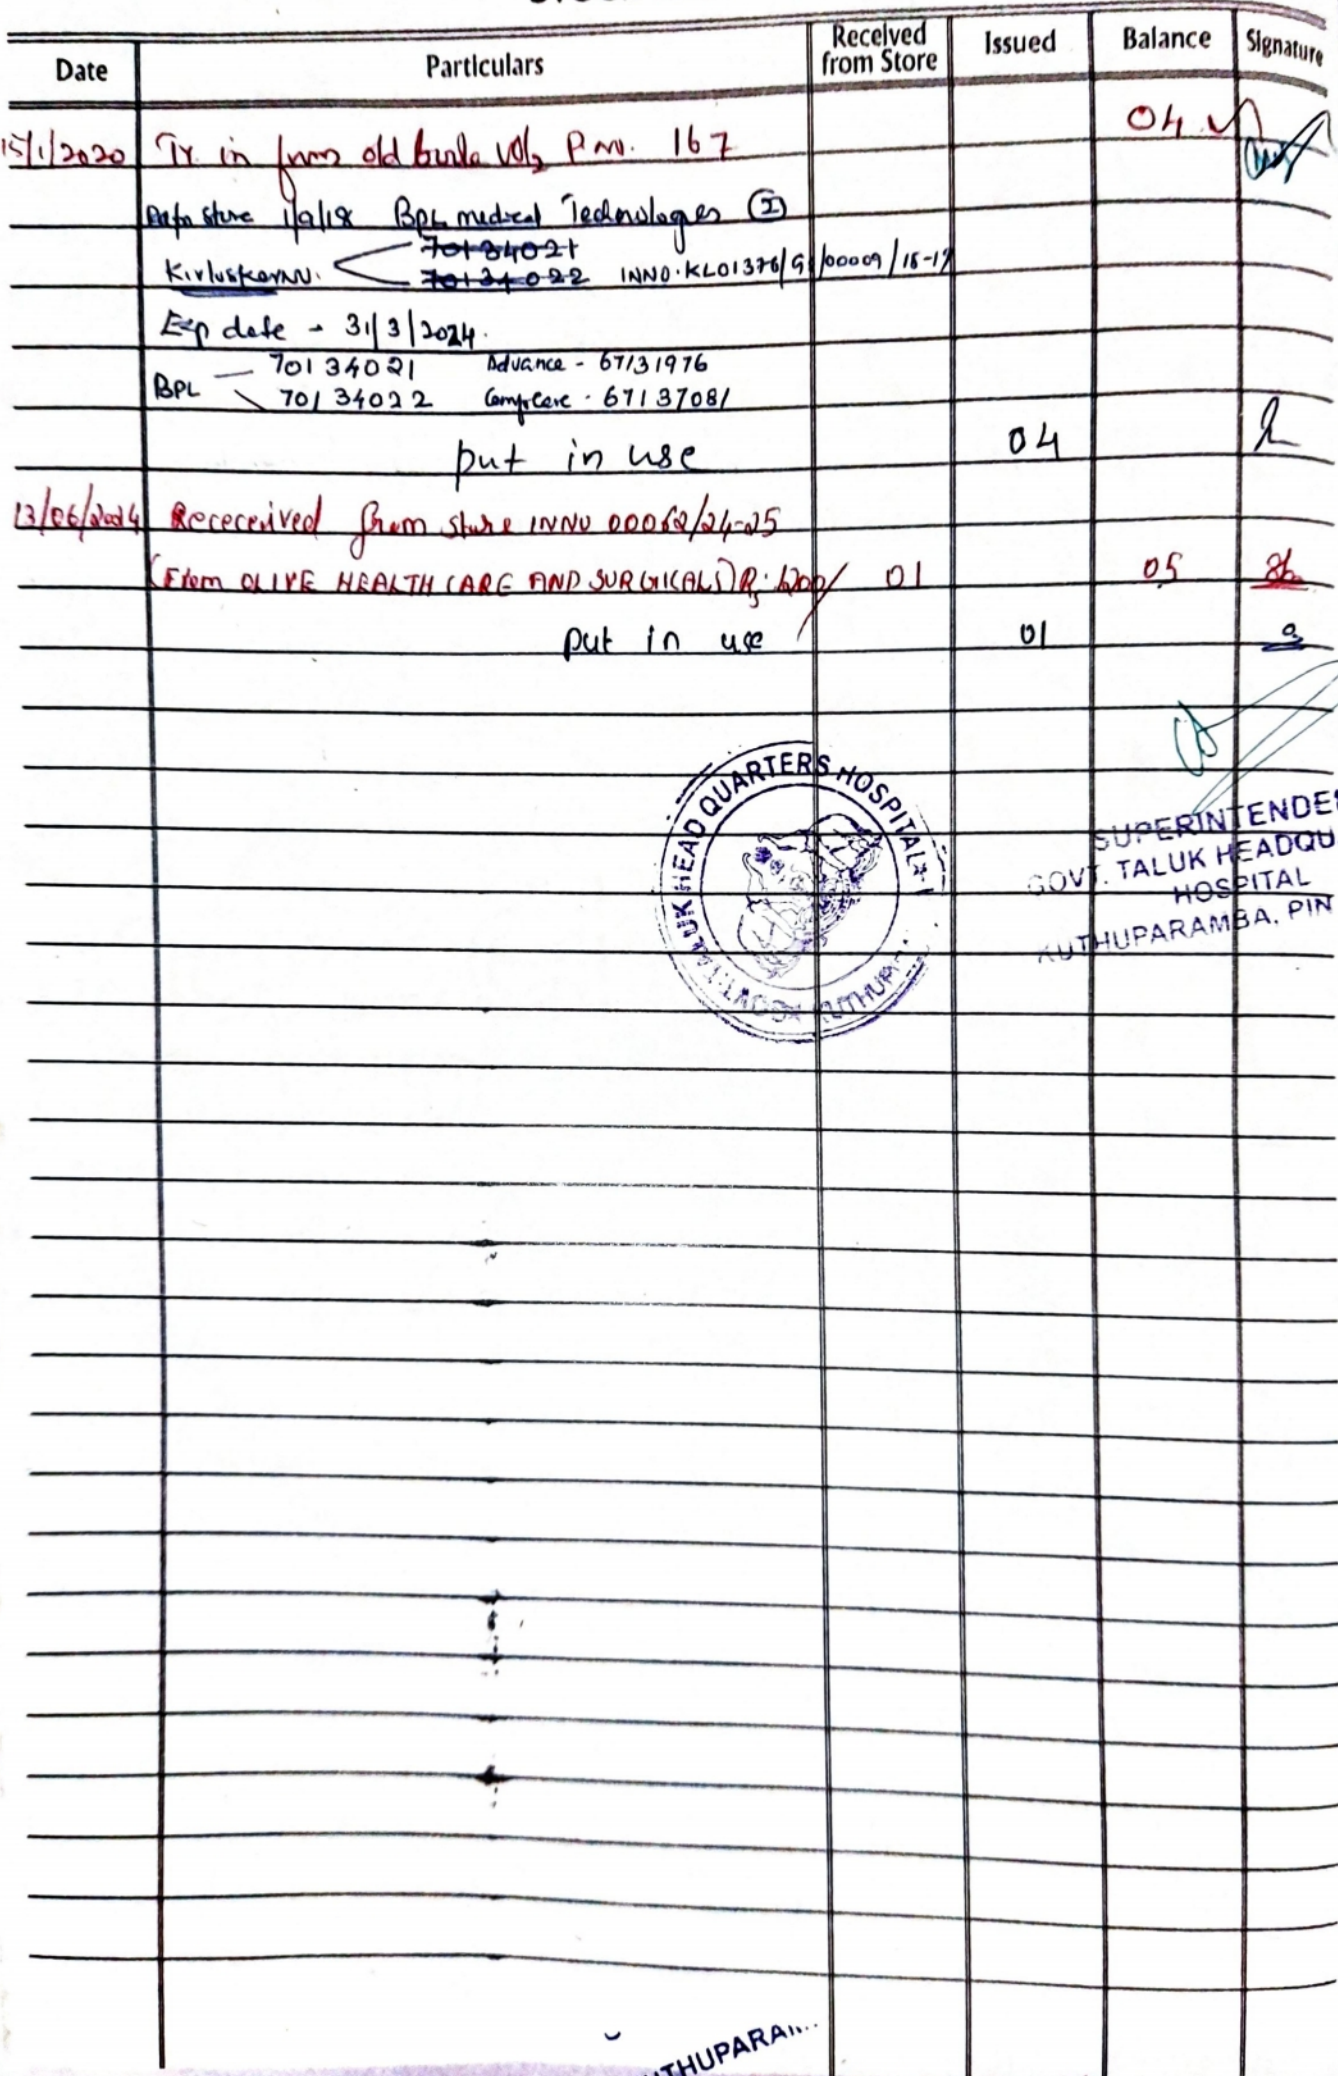 Date Particulars Received from Store Issued Balance Signature
15/1/2020 Tr. in from old VOL2 P.no. 167 04
store 1/9/18 BPL medical Technologies (I)
70134021
Kirloskar 70134022 INNO.KL01376/G /00009/18-19
Exp date - 31/3/2024.
70134021 Advance - 67131976
BPL 70134022 Compcare - 67137081
put in use 04
13/06/2024 Rececerived from store INNO 00062/24-25
(From OLIVE HEALTH CARE AND SURGICALS) 01 05
put in use 01
TALUK HEAD QUARTERS HOSPITAL
SUPERINTENDE
GOVT. TALUK HEADQU
HOSPITAL
KUTHUPARAMBA. PIN
THUPARA